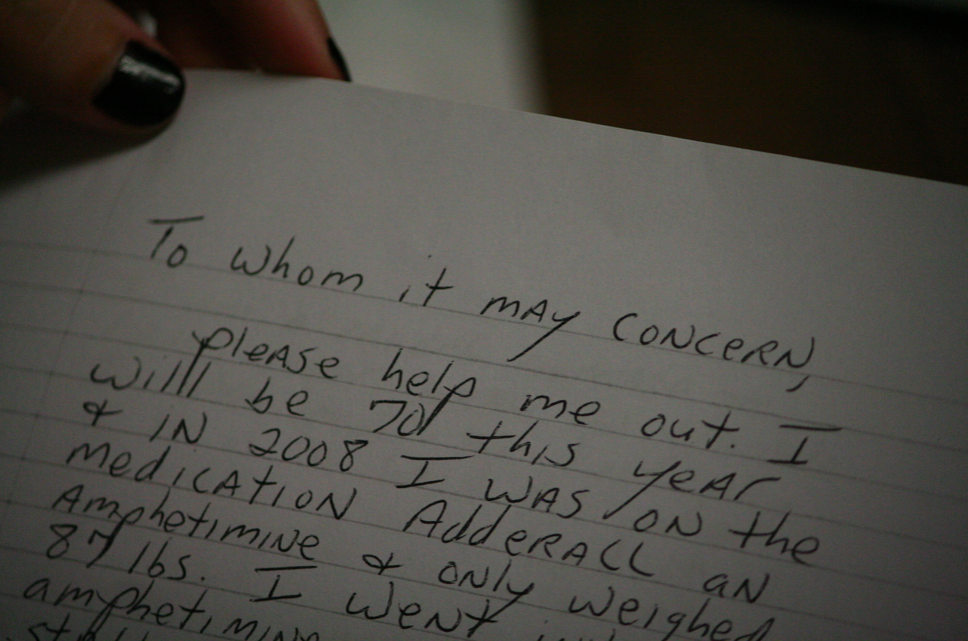 To whom it may concern,
please help me out. I
will be 70 this year
& in 2008 I was on the
medication Adderall an
Amphetimine & only weighed
87 lbs. I went
amphetimine